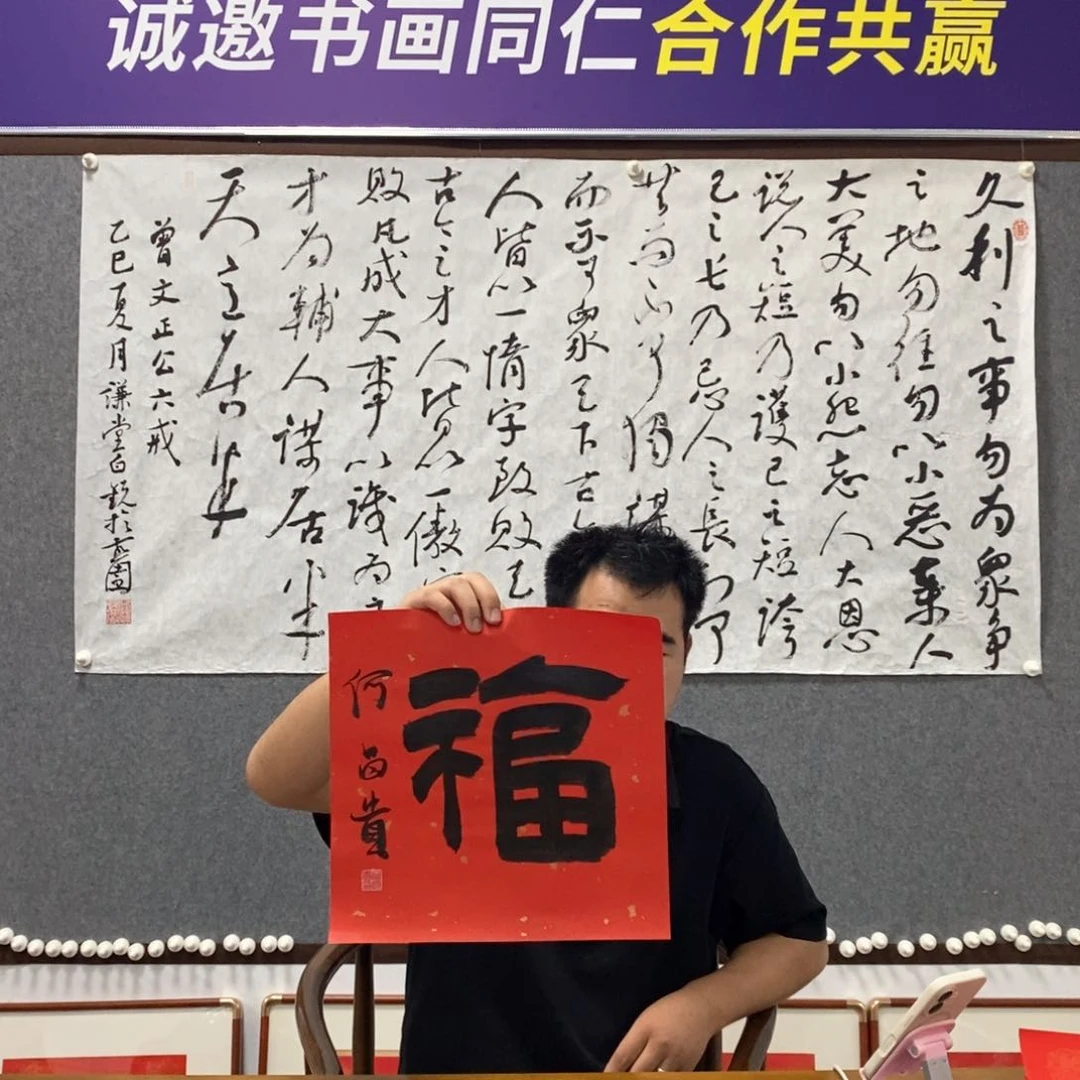 诚邀书画同仁合作共赢
久利之事勿为眾争
之地勿往勿以小恶棄人
大美勿以小怨忘人大恩
说人之短乃護己之短誇
己之长乃忌人之長
共而不可獨謀
而不可眾天下古今
人皆以一惰字致败天
古今之才人皆以一傲
败凡成大事以識为
才为輔人謀居半
天意居半
曾文正公六戒
乙巳夏月谦堂
福
何昌貴